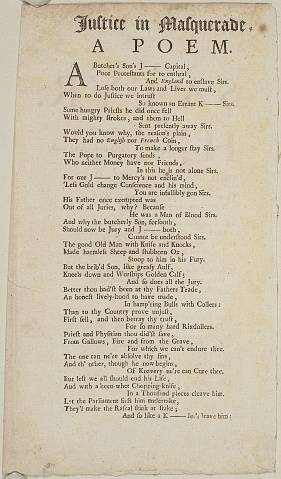 Justice in Masquerade.
A POEM.
A Butcher's Son's J—— Capital,
Poor Protestants for to enthral,
And England to enslave Sirs.
Lose both our Laws and Lives we must,
When to do Justice we intrust
So known an Errant K—— Sirs.
Some hungry Priests he did once fell
With mighty strokes, and them to Hell
Sent presently away Sirs.
Would you know why, the reason's plain,
They had no English nor French Coin,
To make a longer stay Sirs.
The Pope to Purgatory sends,
Who neither Money have nor Friends,
In this he is not alone Sirs.
For our J—— to Mercy's not enclin'd,
'Less Gold change Conscience and his mind,
You are infallibly gon Sirs.
His Father once exempted was
Out of all Juries, why? Because
He was a Man of Blood Sirs.
And why the butcherly Son, forsooth,
Should now be Jury and J—— both,
Cannot be understood Sirs.
The good Old Man with Knife and Knocks,
Made harmless Sheep and stubborn Ox,
Stoop to him in his Fury.
But the brib'd Son, like greasy Aulf,
Kneels down and Worships Golden Calf;
And so does all the Jury.
Better thou had'st been at thy Fathers Trade,
An honest lively-hood to have made,
In hamp'ring Bulls with Collers:
Than to thy Country prove unjust,
First sell, and then betray thy trust,
For so many hard Rixdollers.
Priest and Physitian thou did'st save,
From Gallows, Fire and from the Grave,
For which we can't endure thee.
The one can ne're absolve thy sins,
And th' other, though he now begins,
Of Knavery ne're can Cure thee.
But left we all should end his Life,
And with a keen-whet Chopping-knife,
In a Thousand pieces cleave him.
Let the Parliament first him undertake,
They'l make the Rascal stink at stake;
And so like a K—— leave him: